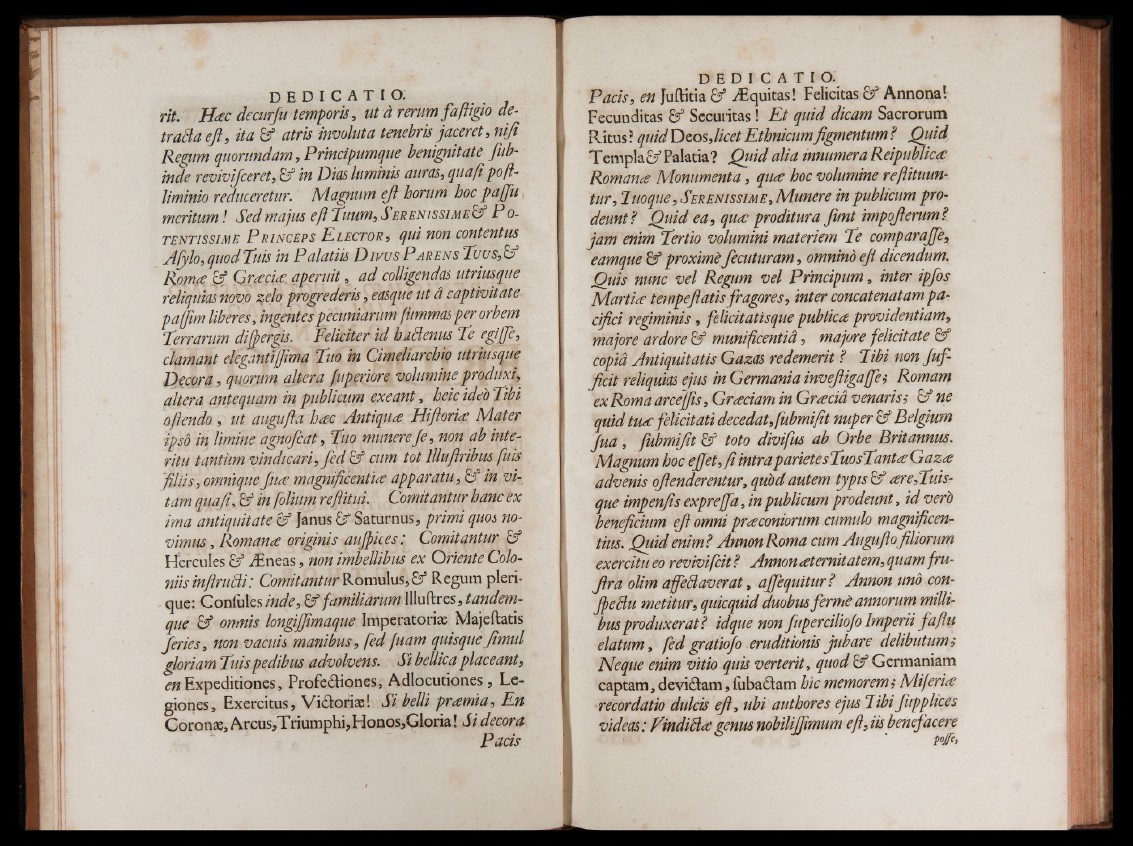 DEDICATIO.
rit. Hæc decurſu temporis, ut à rerum faſtigio de-
tracta eſt, ita & atris involuta tenebris jaceret, niſi
Regum quorundam, Principumque benignitate ſub-
inde reviviſceret, & in Dias luminis auras, quaſi poſt-
liminio reduceretur. Magnum eſt horum hoc paſſu
meritum! Sed majus eſt Tuum, SERENISSIME & PO-
TENTISSIME PRINCEPS ELECTOR, qui non contentus
Aſylo, quod Tuis in Palatiis DIVUS PARENS TUUS, &
Romæ & Græciæ aperuit, ad colligendas utriusque
reliquias novo zelo progrederis, easque ut à captivitate
paſſim liberes, ingentes pecuniarum ſummas per orbem
Terrarum diſpergis. Feliciter id hactenus Te egiſſe,
clamant elegantiſſima Tuo in Cimeliarchio utriusque
Decora, quorum altera ſuperiore volumine produxi,
altera antequam in publicum exeant, heic ideò Tibi
oſtendo, ut auguſta hæc Antiquæ Hiſtoriæ Mater
ipsô in limine agnoſcat, Tuo munere ſe, non ab inte-
ritu tantùm vindicari, ſed & cum tot Illuſtribus ſuis
filiis, omnique ſuæ magnificentiæ apparatu, & in vi-
tam quaſi, & in ſolium reſtitui. Comitantur hanc ex
ima antiquitate & Janus & Saturnus, primi quos no-
vimus, Romanæ originis auſpices: Comitantur &
Hercules & Æneas, non imbellibus ex Oriente Colo-
niis inſtructi: Comitantur Romulus, & Regum pleri-
que: Conſules inde, & familiarum Illuſtres, tandem-
que & omnis longiſſimaque Imperatoriæ Majeſtatis
ſeries, non vacuis manibus, ſed ſuam quisque ſimul
gloriam Tuis pedibus advolvens. Si bellica placeant,
en Expeditiones, Profectiones, Adlocutiones, Le-
giones, Exercitus, Victoriæ! Si belli præmia, En
Coronæ, Arcus, Triumphi, Honos, Gloria! Si decora
Pacis
DEDICATIO.
Pacis, en Juſtitia & Æquitas! Felicitas & Annona!
Fecunditas & Securitas! Et quid dicam Sacrorum
Ritus? quid Deos, licet Ethnicum figmentum? Quid
Templa & Palatia? Quid alia innumera Reipublicæ
Romanæ Monumenta, quæ hoc volumine reſtituun-
tur, Tuoque, SERENISSIME, Munere in publicum pro-
deunt? Quid ea, quæ proditura ſunt impoſterum?
jam enim Tertio volumini materiem Te comparaſſe,
eamque & proximè ſecuturam, omninò eſt dicendum.
Quis nunc vel Regum vel Principum, inter ipſos
Martiæ tempeſtatis fragores, inter concatenatam pa-
cifici regiminis, felicitatisque publicæ providentiam,
majore ardore & munificentiâ, majore felicitate &
copiâ Antiquitatis Gazas redemerit? Tibi non ſuf-
ficit reliquias ejus in Germania inveſtigaſſe; Romam
ex Roma arceſſis, Græciam in Græciâ venaris; & ne
quid tuæ felicitati decedat, ſubmiſit nuper & Belgium
ſua, ſubmiſit & toto diviſus ab Orbe Britannus.
Magnum hoc eſſet, ſi intra parietes Tuos Tantæ Gazæ
advenis oſtenderentur, quòd autem typis & ære, Tuis-
que impenſis expreſſa, in publicum prodeunt, id verò
beneficium eſt omni præconiorum cumulo magnificen-
tius. Quid enim? Annon Roma cum Auguſto filiorum
exercitu eo reviviſcit? Annon æternitatem, quam fru-
ſtra olim affectaverat, aſſequitur? Annon unò con-
ſpectu metitur, quicquid duobus fermè annorum milli-
bus produxerat? idque non ſupercilioſo Imperii faſtu
elatum, ſed gratioſo eruditionis jubare delibutum;
Neque enim vitio quis verterit, quod & Germaniam
captam, devictam, ſubactam hic memorem; Miſeriæ
recordatio dulcis eſt, ubi authores ejus Tibi ſupplices
videas: Vindictæ genus nobiliſſimum eſt, iis benefacere
poſſe,